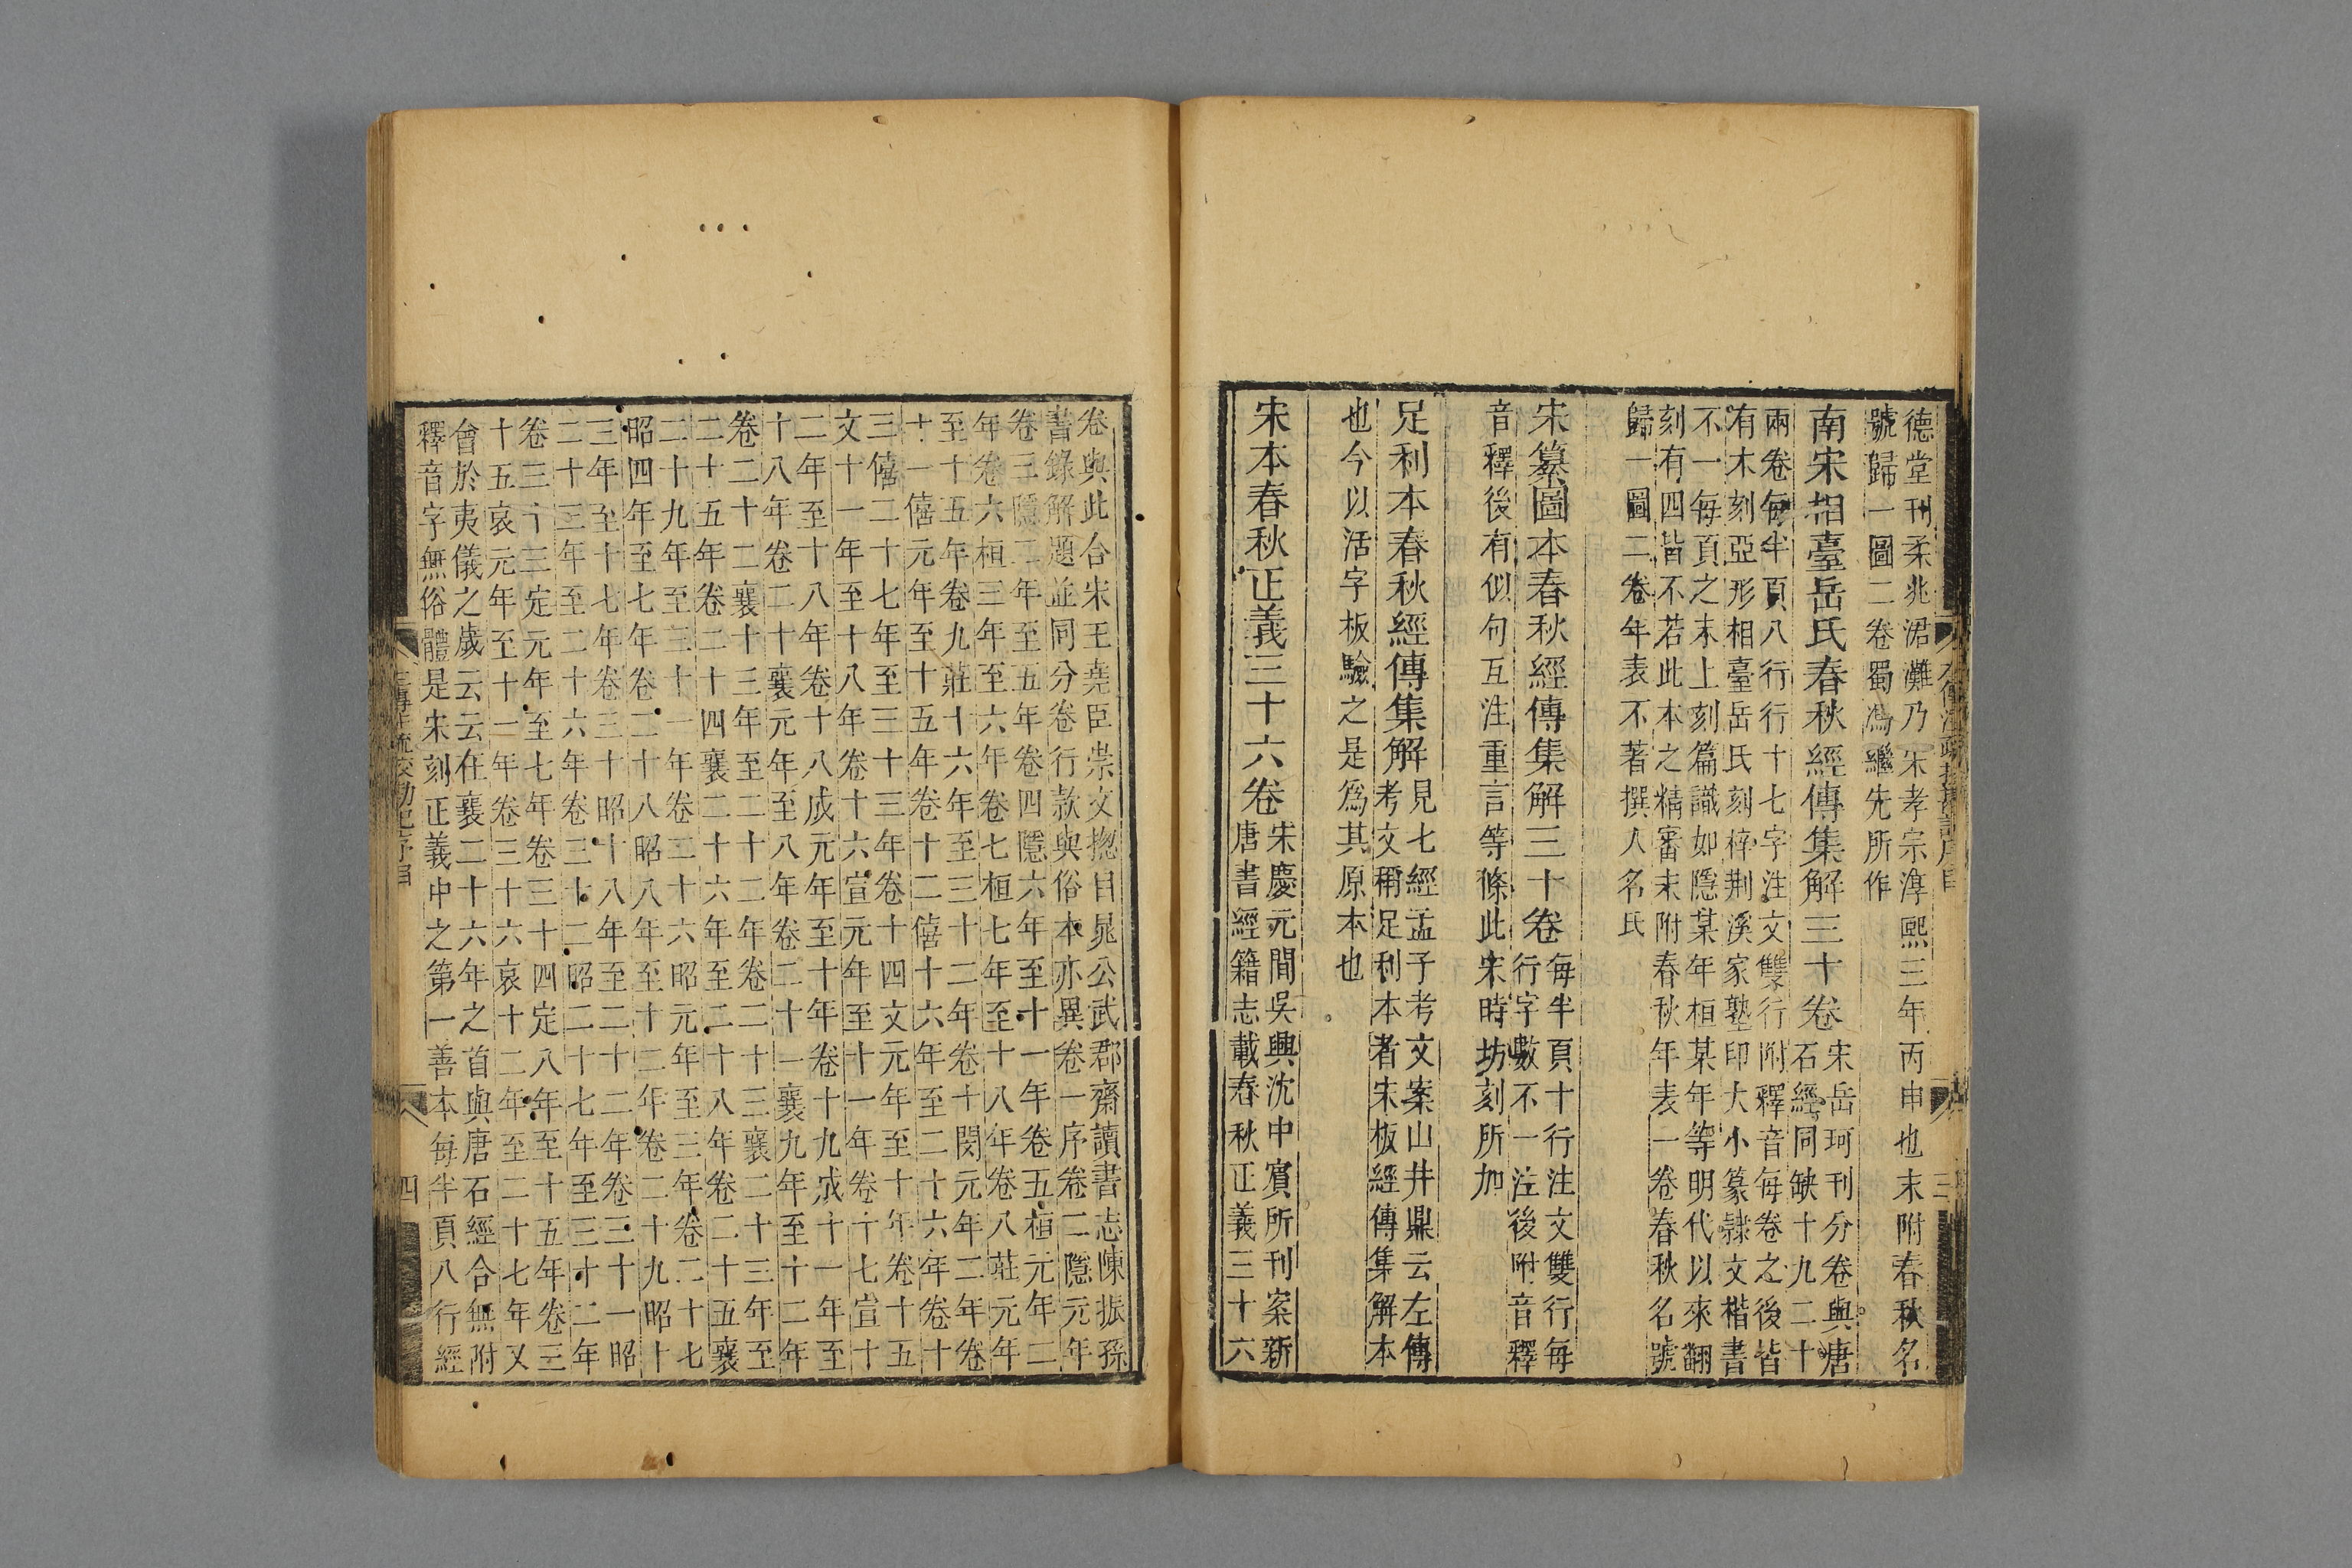 德堂刊柔兆涒灘乃宋孝宗淳熙三年丙申也末附春秋名
號歸一圖二卷蜀馮繼先所作
南宋相臺岳氏春秋經傳集解三十卷
宋岳珂刊分卷與唐
石經同缺十九二十
兩卷每半頁八行行十七字注文雙行附釋音每卷之後皆
有木刻亞形相臺岳氏刻梓荆溪家塾印大小篆隸文楷書
不一每頁之末上刻篇識如隱某年桓某年等明代以來翻
刻有四皆不若此本之精審末附春秋年表一卷春秋名號
歸一圖二卷年表不著撰人名氏
宋纂圖本春秋經傳集解三十卷
每半頁十行注文雙行每
行字數不一注後附音釋
音釋後有似句互注重言等條此宋時坊刻所加
足利本春秋經傳集解
見七經孟子考文案山井鼎云左傳
考文稱足利本者宋板經傳集解本
也今以活字板驗之是爲其原本也
宋本春秋正義三十六卷
宋慶元間吳興沈中賓所刊案新
唐書經籍志載春秋正義三十六
卷與此合宋王堯臣崇文揔目晁公武郡齋讀書志陳振孫
書錄解題並同分卷行款與俗本亦異卷一序卷二隱元年
卷三隱二年至五年卷四隱六年至十一年卷五桓元年二
年卷六桓三年至六年卷七桓七年至十八年卷八莊元年
至十五年卷九莊十六年至三十二年卷十閔元年二年卷
十一僖元年至十五年卷十二僖十六年至二十六年卷十
三僖二十七年至三十三年卷十四文元年至十年卷十五
文十一年至十八年卷十六宣元年至十一年卷十七宣十
二年至十八年卷十八成元年至十年卷十九成十一年至
十八年卷二十襄元年至八年卷二十一襄九年至十二年
卷二十二襄十三年至二十二年卷二十三襄二十三年至
二十五年卷二十四襄二十六年至二十八年卷二十五襄
二十九年至三十一年卷二十六昭元年至三年卷二十七
昭四年至七年卷二十八昭八年至十二年卷二十九昭十
三年至十七年卷三十昭十八年至二十二年卷三十一昭
二十三年至二十六年卷三十二昭二十七年至三十二年
卷三十三定元年至七年卷三十四定八年至十五年卷三
十五哀元年至十一年卷三十六哀十二年至二十七年又
曾於夷儀之歲云云在襄二十六年之首與唐石經合無附
釋音字無俗體是宋刻正義中之第一善本每半頁八行經
四